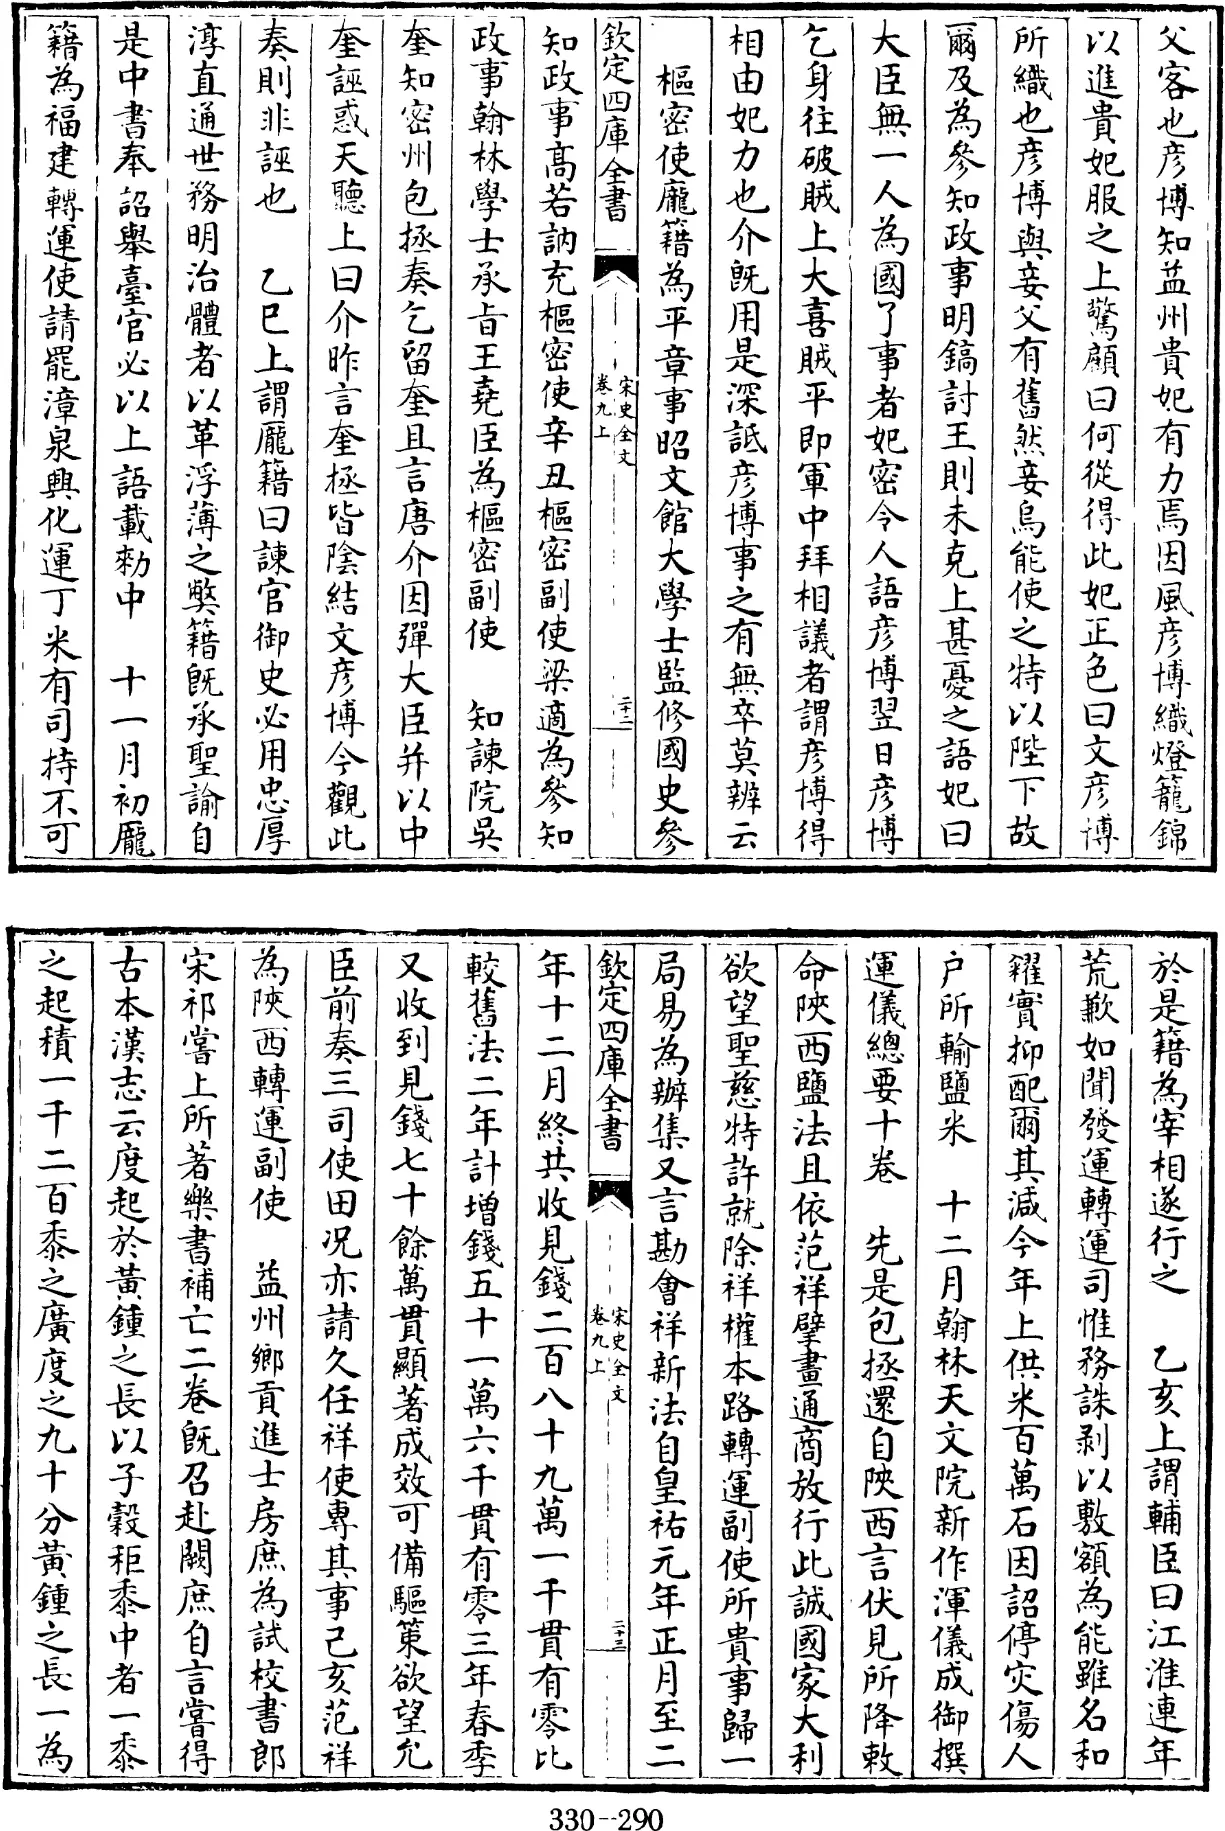 父客也彦博知益州貴妃有力焉因風彦博織燈籠錦
以進貴妃服之上驚顧曰何從得此妃正色曰文彦博
所織也彦博與妾父有舊然妾烏能使之特以陛下故
爾及為參知政事明鎬討王則未克上甚憂之語妃曰
大臣無一人為國了事者妃密令人語彦博翌日彦博
乞身往破賊上大喜賊平即軍中拜相議者謂彦博得
相由妃力也介既用是深詆彦博事之有無卒莫辨云
樞密使龐籍為平章事昭文館大學士監修國史參
欽定四庫全書
宋史全文
卷九上
二十二
知政事高若訥充樞密使辛丑樞密副使梁適為參知
政事翰林學士承旨王堯臣為樞密副使 知諫院吳
奎知密州包拯奏乞留奎且言唐介因彈大臣并以中
奎誣惑天聽上曰介昨言奎拯皆陰結文彦博今觀此
奏則非誣也 乙巳上謂龐籍曰諫官御史必用忠厚
淳直通世務明治體者以革浮薄之獘籍既承聖諭自
是中書奉詔舉臺官必以上語載勑中 十一月初龐
籍為福建轉運使請罷漳泉興化運丁米有司持不可
於是籍為宰相遂行之 乙亥上謂輔臣曰江淮連年
荒歉如聞發運轉運司惟務誅剥以敷額為能雖名和
糴實抑配爾其減今年上供米百萬石因詔停灾傷人
户所輸鹽米 十二月翰林天文院新作渾儀成御撰
運儀總要十卷 先是包拯還自陜西言伏見所降敕
命陜西鹽法且依范祥擘畫通商放行此誠國家大利
欲望聖慈特許就除祥權本路轉運副使所貴事歸一
局易為辦集又言勘會祥新法自皇祐元年正月至二
欽定四庫全書
宋史全文
卷九上
二十三
年十二月終共收見錢二百八十九萬一千貫有零比
較舊法二年計增錢五十一萬六千貫有零三年春季
又收到見錢七十餘萬貫顯著成效可備驅策欲望允
臣前奏三司使田况亦請久任祥使專其事己亥范祥
為陜西轉運副使 益州鄉貢進士房庶為試校書郎
宋祁嘗上所著樂書補亡二卷既召赴闕庶自言嘗得
古本漢志云度起於黄鍾之長以子穀秬黍中者一黍
之起積一千二百黍之廣度之九十分黄鍾之長一為
330--290